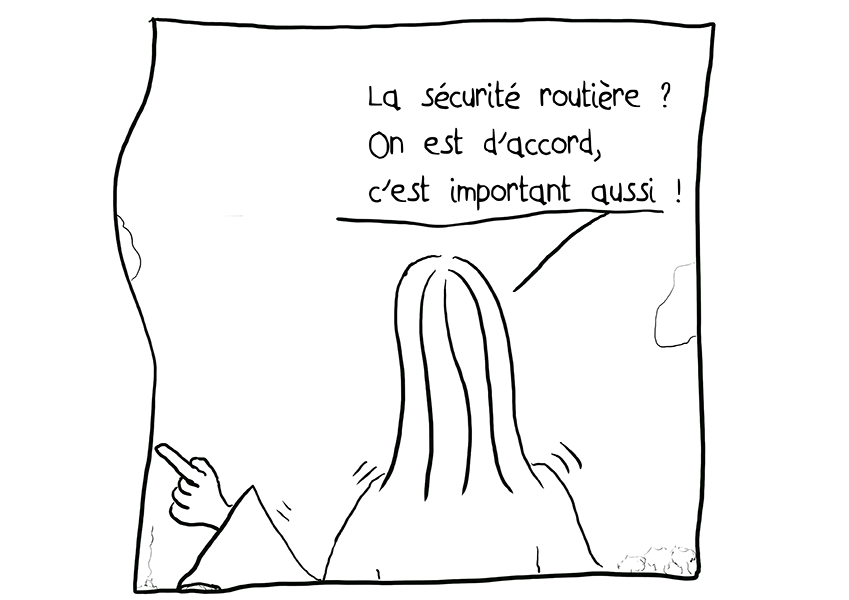 La sécurité routière ?
On est d'accord,
c'est important aussi !